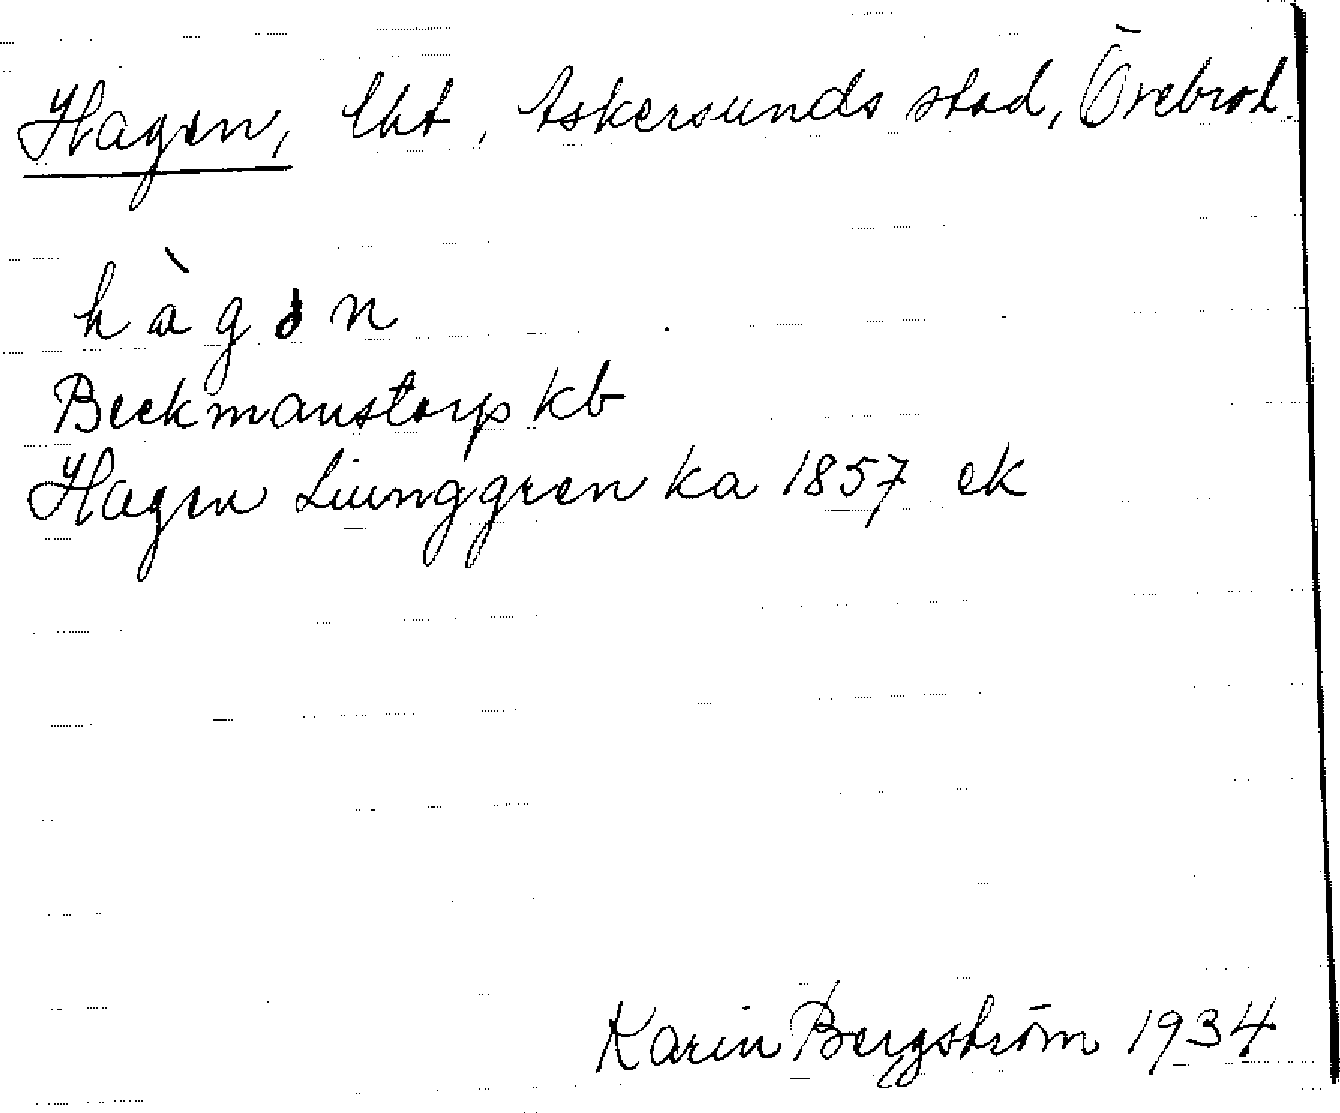 Hagen, lht, Askersunds stad, Örebro l.
hàgən
Beckmanstorp kb
Hagen Liunggren ka 1857 ek
Karin Bergström 1934